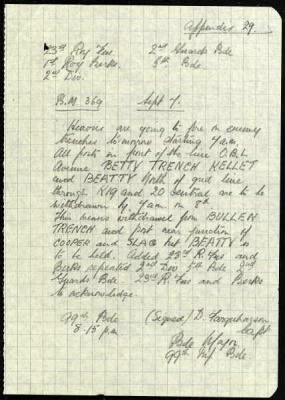 Appendix 29.
23rd Roy Fus. 2nd Guards Bde
1st Roy Berks. 5th Bde.
2nd Div.
B.M. 369 Sept 7.
Heavies are going to fire on enemy
trenches tomorrow starting 7 a.m.
All posts in front of the line C.B.L
Avenue BETTY TRENCH KELLET
and BEATTY North of grid line
through K19 and 20 central are to be
withdrawn by 7 am on 8th.
This means withdrawal from BULLEN
TRENCH and post near junction of
COOPER and SLAG but BEATTY is
to be held. Added 23rd R. Fus and
Berks repeated 2nd Div 5th Bde 2nd
Guards Bde. 23rd R. Fus and Berks
to acknowledge.
99th Bde (Signed) D. Farquharson
8-15 p.m. Capt
Bde Major
99th Inf Bde.